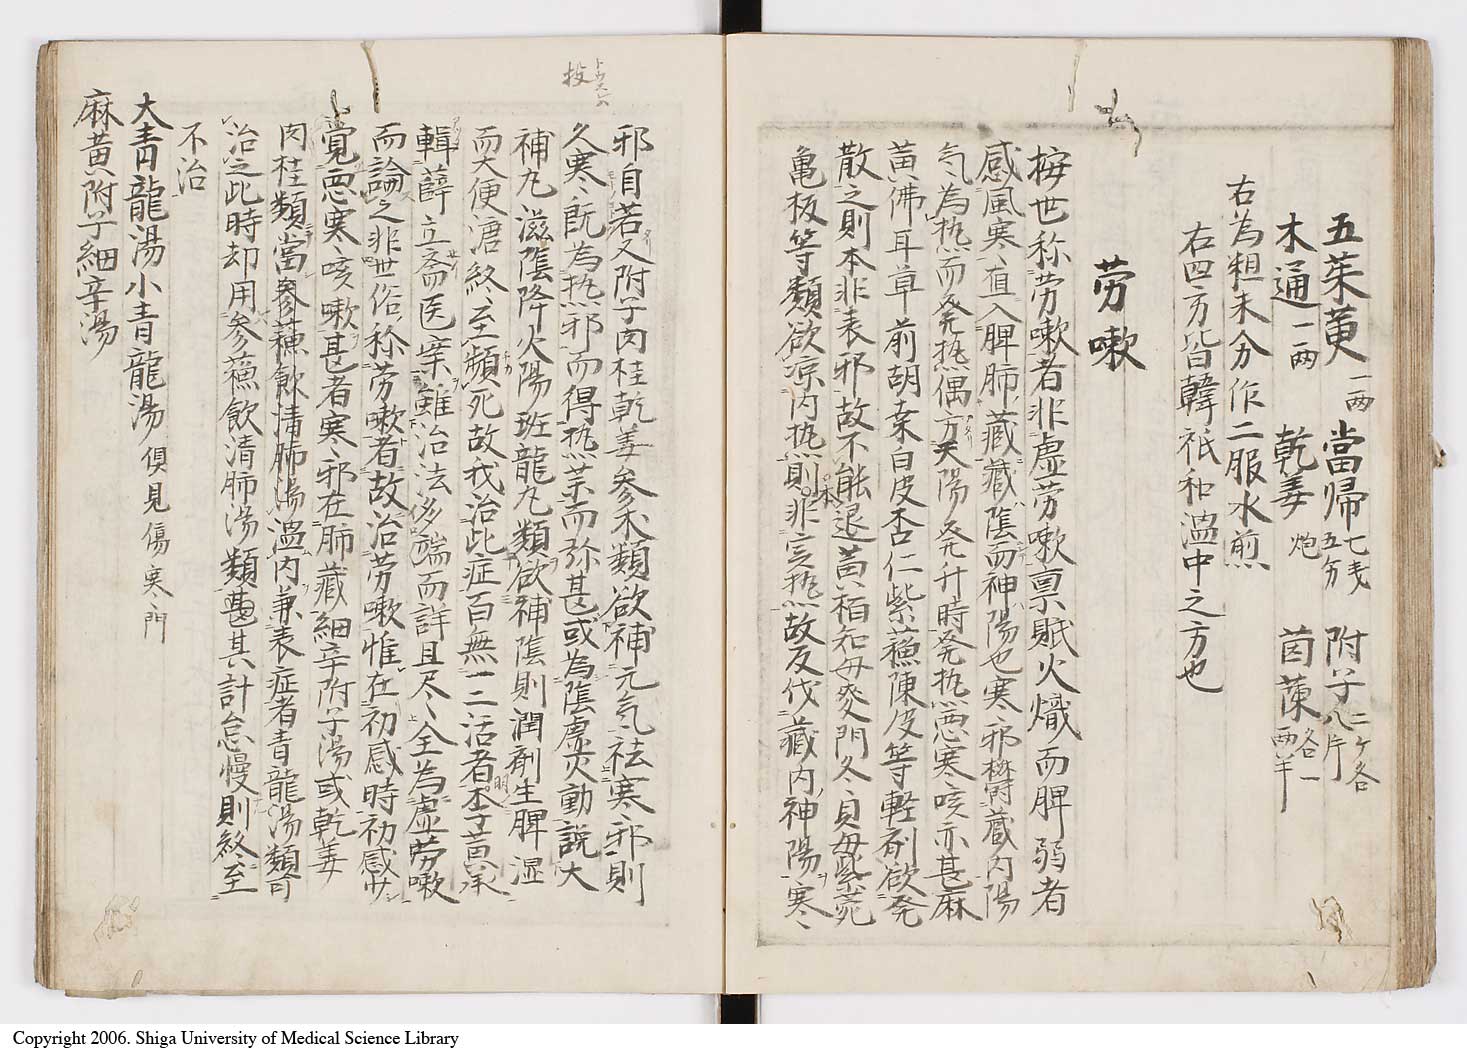 五茱萸一両 當帰七戔五分 附子二ケ各八片
木通一両 乾姜炮 茵蔯各一両半
右為粗末分作二服水煎
右四方皆韓祇和溫中之方也
劳嗽
按世称劳嗽者非虚劳嗽禀貶火熾而脾弱者
感風寒〻直入脾肺藏藏陰而神陽也寒邪欝藏内陽
气為热而発热偶方天陽発升時発热悪寒咳亦甚麻
黄佛耳草前胡桒白皮杏仁紫蘓陳皮等軽剤欲発
散之則本非表邪故不能退黄栢知母麥門冬貝母紫菀
亀板等類欲凉内热則本非实热故反伐藏内神陽寒〻
邪自若又附子肉桂乾姜参朮類欲補元气祛寒邪則
久寒〻既為热邪而得热薬而弥甚或為陰虚火動説大
補丸滋陰降火陽班龍丸類欲補陰則潤剤生脾湿
而大便溏終至頻死故我治此症百無一二活者明黄承
輯薛立斎医案雖治法多端而詳且尽〻全為虚劳嗽
而論之非世俗称劳嗽者故治劳嗽惟在初感時初感サ
覚悪寒咳嗽甚者寒邪在肺藏細辛附子湯或乾姜
肉桂類當參蘓飲清肺湯溫内兼表症者青龍湯類可
治之此時却用参蘓飲清肺湯類甚其計怠慢則終至
不治
大青龍湯小青龍湯俱見傷寒門
麻黄附子細辛湯
投